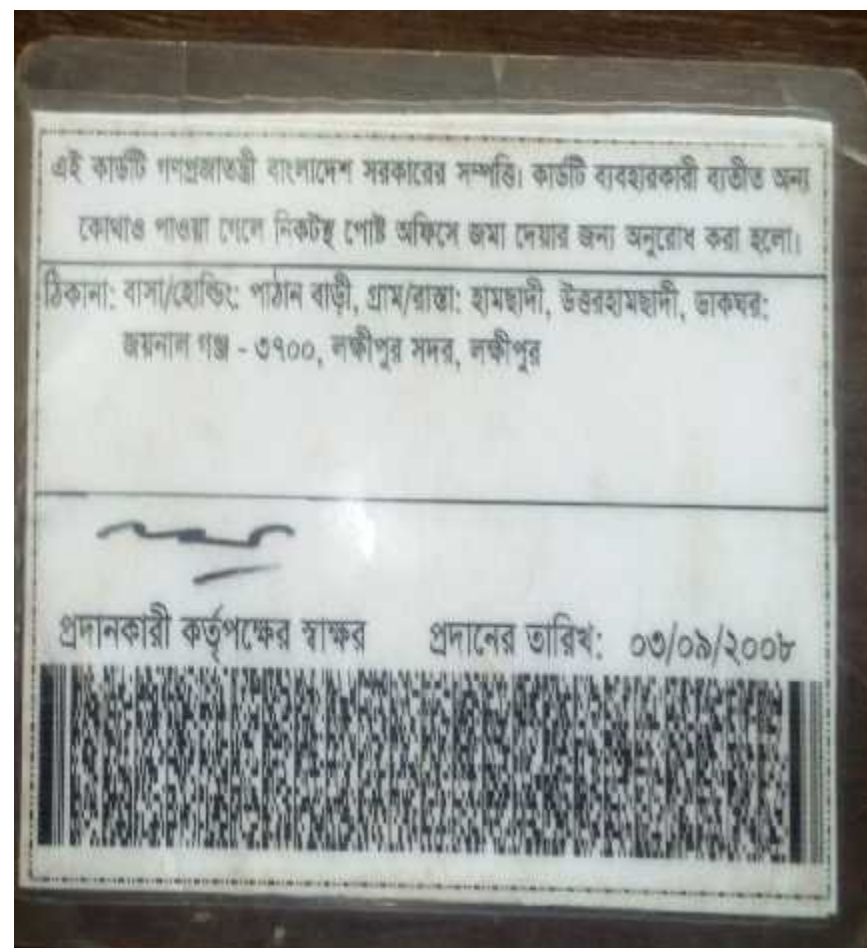 এই কার্ডটি গণপ্রজাতন্ত্রী বাংলাদেশ সরকারের সম্পত্তি। কার্ডটি ব্যবহারকারী ব্যতীত অন্য
কোথাও পাওয়া গেলে নিকটস্থ পোষ্ট অফিসে জমা দেয়ার জন্য অনুরোধ করা হলো।
ঠিকানা: বাসা/হোল্ডিং: পাঠান বাড়ী, গ্রাম/রাস্তা: হামছাদী, উত্তরহামছাদী, ডাকঘর:
জয়নাল গঞ্জ - ৩৭০০, লক্ষীপুর সদর, লক্ষীপুর
প্রদানকারী কর্তৃপক্ষের স্বাক্ষর প্রদানের তারিখ: ০৩/০৯/২০০৮